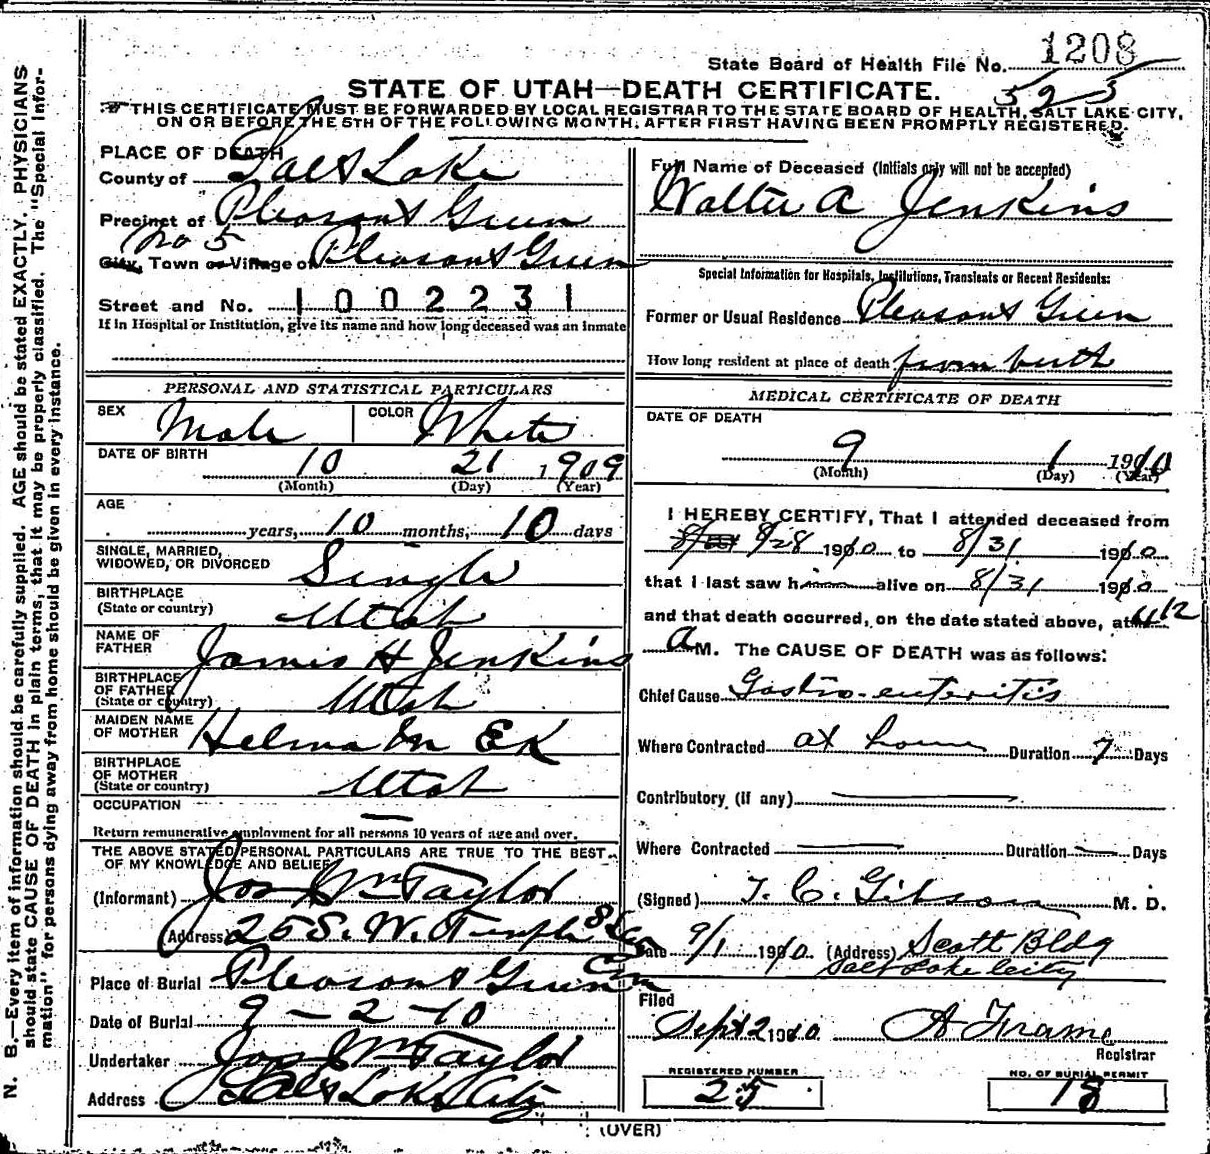 State Board of Health File No. 1208
525
STATE OF UTAH—DEATH CERTIFICATE.
THIS CERTIFICATE MUST BE FORWARDED BY LOCAL REGISTRAR TO THE STATE BOARD OF HEALTH, SALT LAKE CITY,
ON OR BEFORE THE 5TH OF THE FOLLOWING MONTH, AFTER FIRST HAVING BEEN PROMPTLY REGISTERED.
N. B.—Every item of information should be carefully supplied. AGE should be stated EXACTLY. PHYSICIANS
should state CAUSE OF DEATH in plain terms, that it may be properly classified. The "Special Infor-
mation" for persons dying away from home should be given in every instance.
PLACE OF DEATH
County of Salt Lake
Precinct of Pleasant Green
No 5
City, Town or Village of Pleasant Green
Street and No. 1002231
If in Hospital or Institution, give its name and how long deceased was an inmate
PERSONAL AND STATISTICAL PARTICULARS
SEX Male COLOR White
DATE OF BIRTH 10 21 1909
(Month) (Day) (Year)
AGE
years, 10 months, 10 days
SINGLE, MARRIED,
WIDOWED, OR DIVORCED Single
BIRTHPLACE
(State or country) Utah
NAME OF
FATHER James H Jenkins
BIRTHPLACE
OF FATHER
(State or country) Utah
MAIDEN NAME
OF MOTHER Helma M Ek
BIRTHPLACE
OF MOTHER
(State or country) Utah
OCCUPATION —
Return remunerative employment for all persons 10 years of age and over.
THE ABOVE STATED PERSONAL PARTICULARS ARE TRUE TO THE BEST
OF MY KNOWLEDGE AND BELIEF
(Informant) Jos Wm Taylor
(Address) 25 S. W. Temple
Place of Burial Pleasant Green Cem
Date of Burial 9-2-10
Undertaker Jos Wm Taylor
Address Salt Lake City
Full Name of Deceased (Initials only will not be accepted)
Walter A Jenkins
Special Information for Hospitals, Institutions, Transients or Recent Residents:
Former or Usual Residence Pleasant Green
How long resident at place of death from birth
MEDICAL CERTIFICATE OF DEATH
DATE OF DEATH
9 1 1910
(Month) (Day) (Year)
I HEREBY CERTIFY, That I attended deceased from
8/28 1910 to 8/31 1910
that I last saw him alive on 8/31 1910
and that death occurred, on the date stated above, at 4 12
A M. The CAUSE OF DEATH was as follows:
Chief Cause Gastro-enteritis
Where Contracted at home Duration 7 Days
Contributory (if any) —
Where Contracted — Duration — Days
(Signed) T. C. Gibson M. D.
Date 9/1 1910. (Address) Scott Bldg
Salt Lake City
Filed
Sept 2 1910 A Frame
Registrar
REGISTERED NUMBER
25
NO. OF BURIAL PERMIT
18
(OVER)